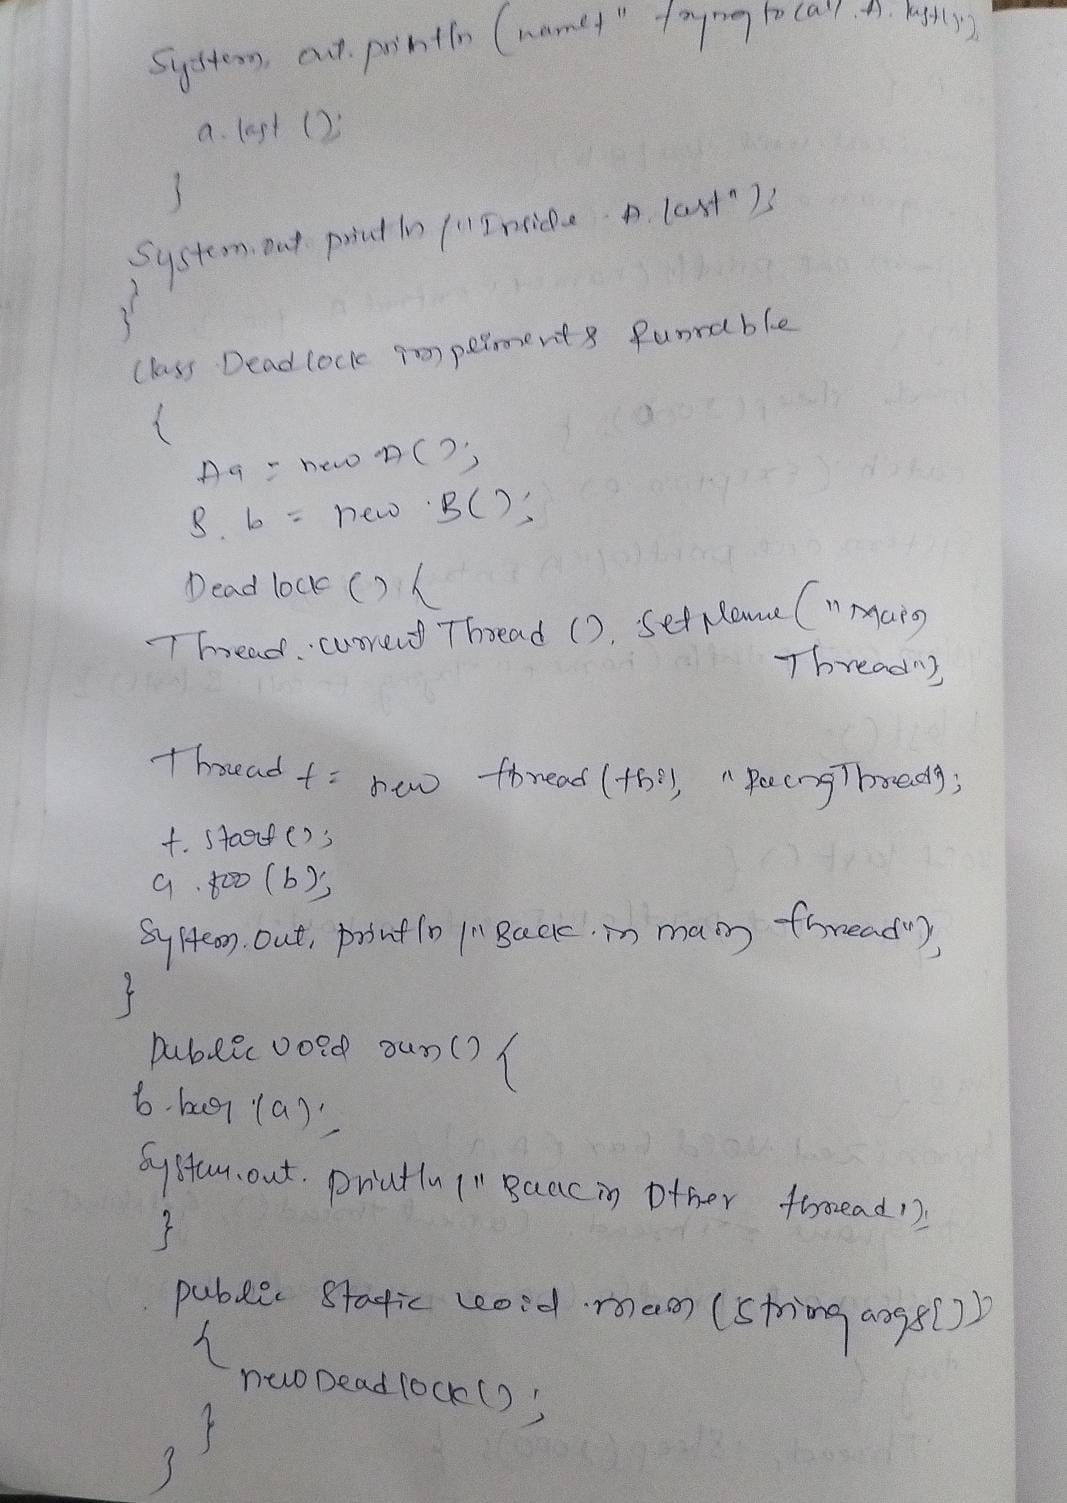 System. out. println (name+" trying to call A. last());
a. last ();
}
System. out println ("Inside A. last");
}
}
class Deadlock impliments Runnable
{
A a = new A();
B. b = new B();
Deadlock () {
Thread. current Thread (). setName ("Main
Thread");
Thread t = new thread (this, "Racing Thread");
t. start ();
a. foo (b);
System. out. println (" Back in main thread");
}
public void run () {
b. bar (a);
System. out. println (" Back in Other thread");
}
public static void main (string args[])
{
new Deadlock ();
}
}